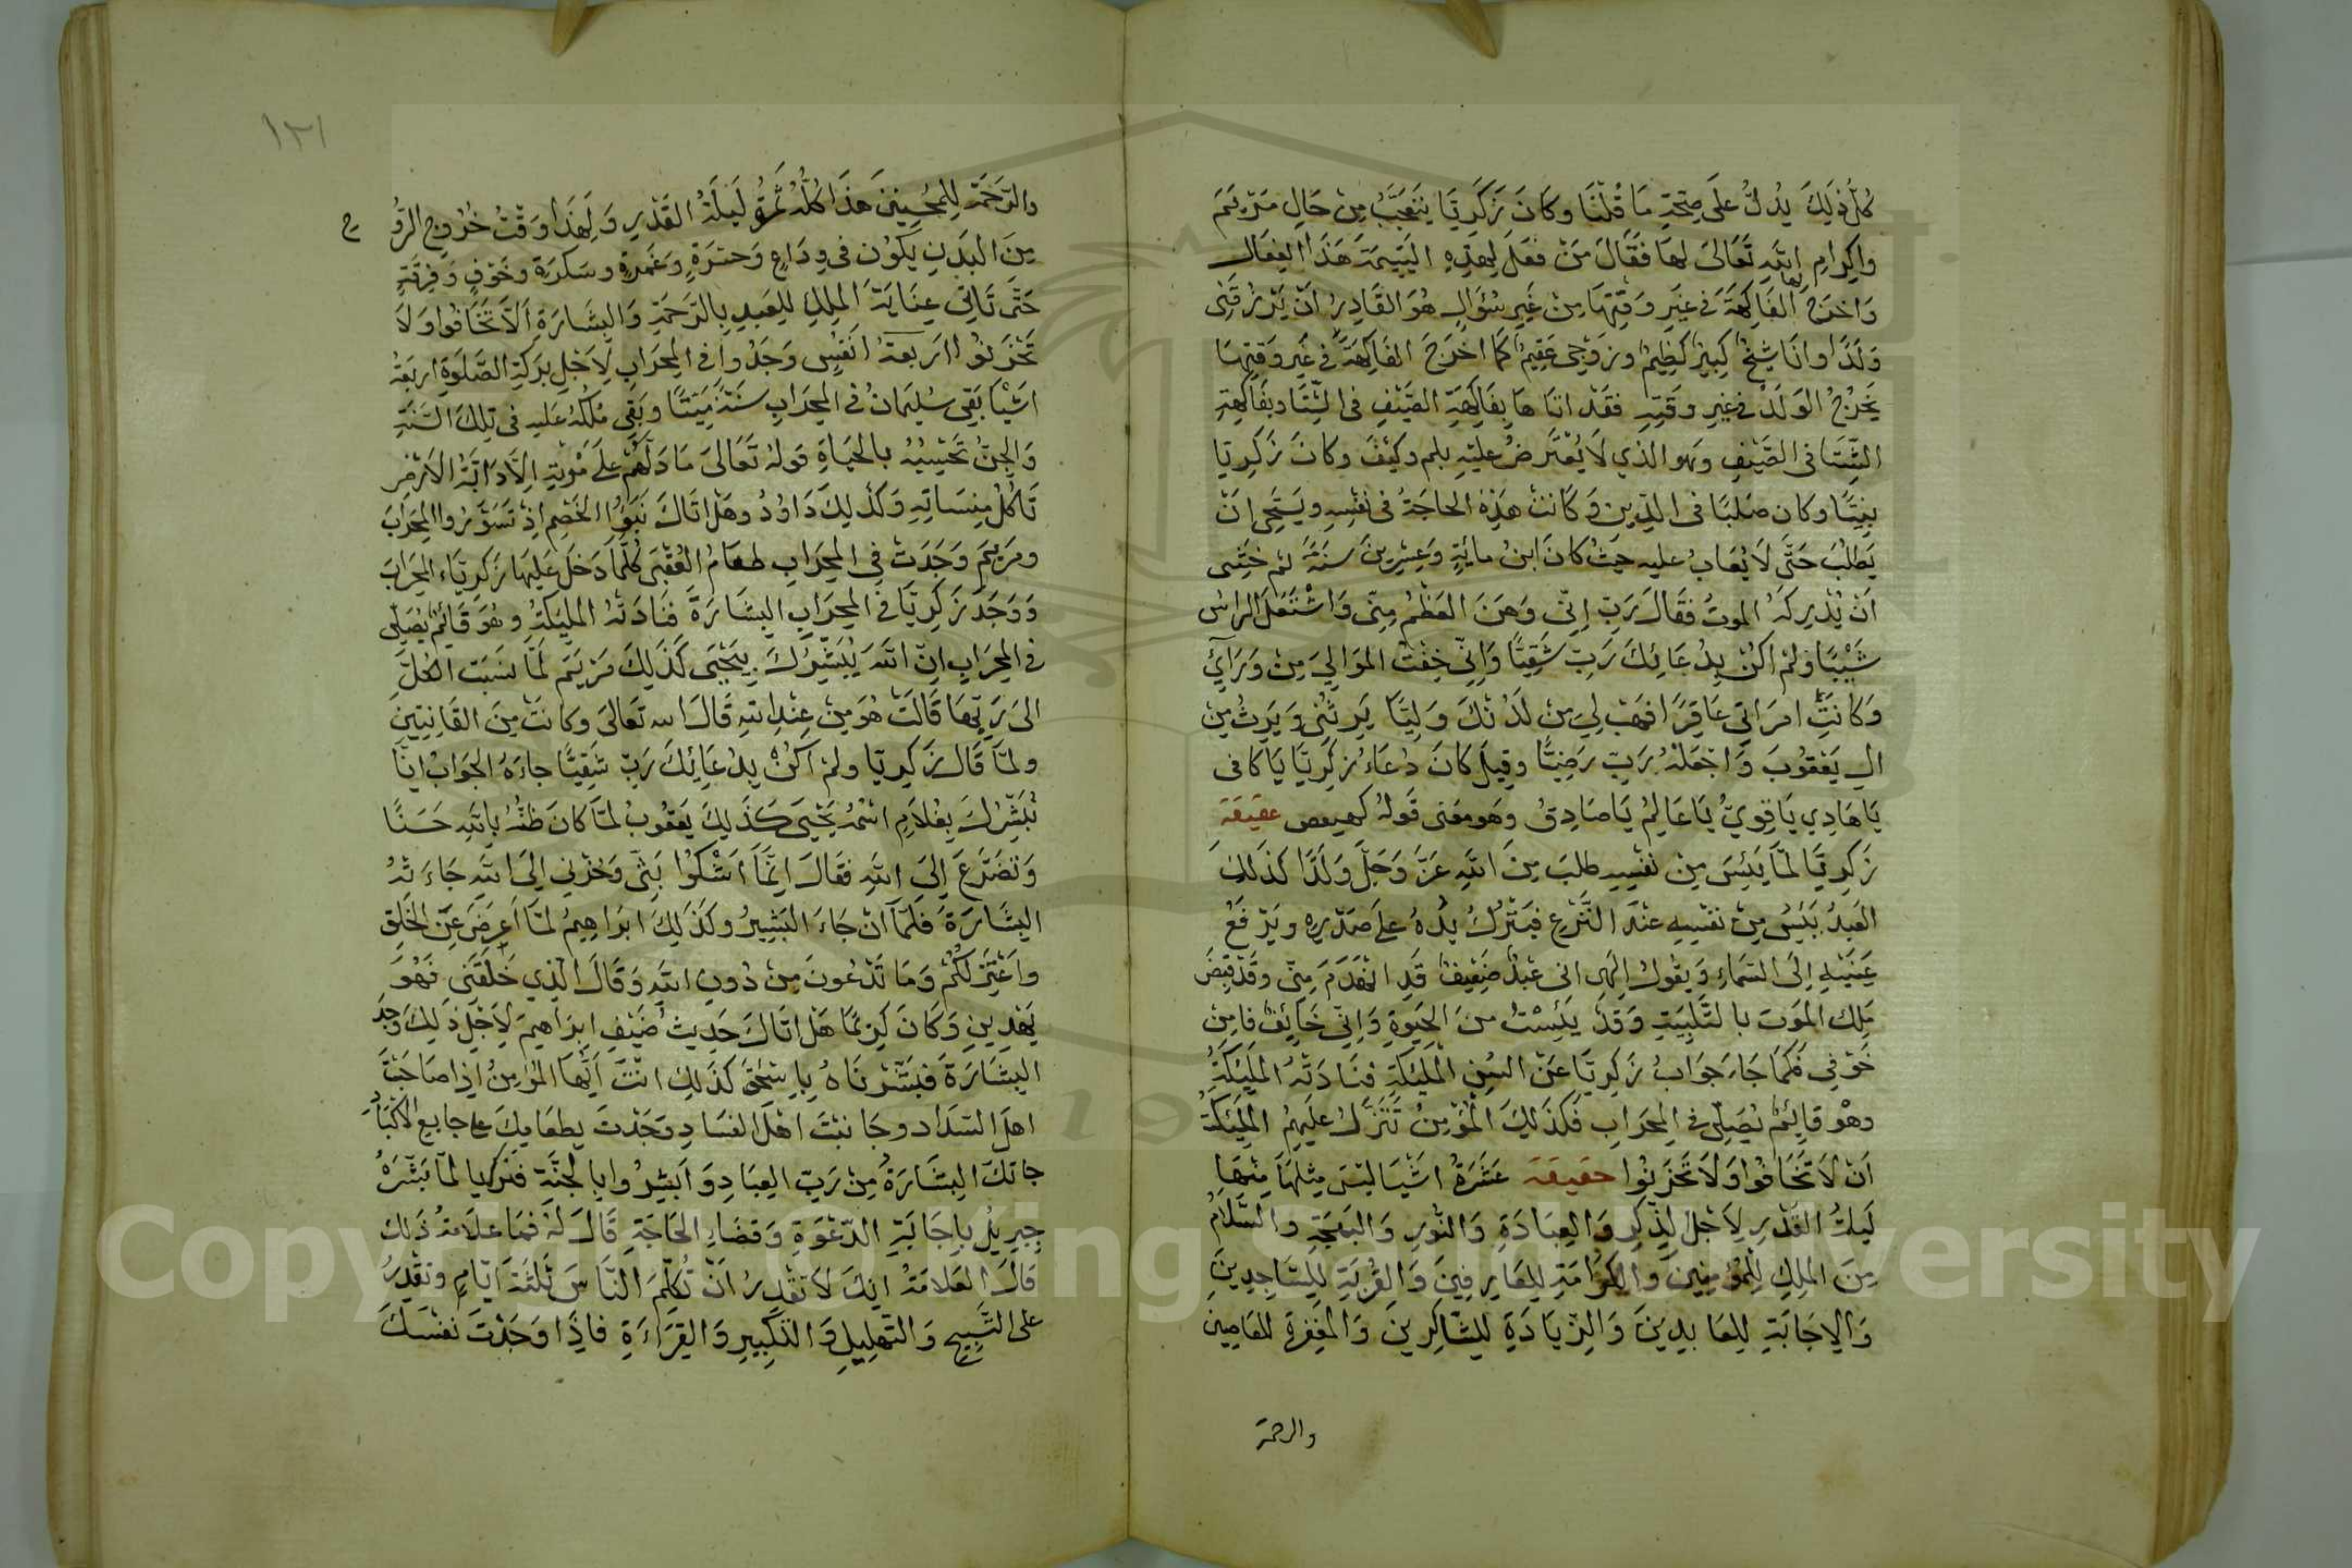 كُلُّ ذٰلِكَ يَدُلُّ عَلَى صِحَّةِ مَا قُلْنَا وكَانَ زَكَرِيَّا يَتَعَجَّبُ مِنْ حَالِ مَرْيَمَ
واِكرامِ اللّٰهِ تَعَالىَ لهَا فَقَالَ مَنْ فعَلَ لِهذِهِ اليَتِيمَةِ هَذَا الفِعَال
وَاخرَجَ لها الفَاكِهَةَ في غَيرِ وَقتِهَا مِنْ غَيرِ سُؤَالٍ هُوَ القَادِرُ اَنْ يَرْزُقَنِى
وَلَدًا وانَا شيخٌ كَبِيرٌ كَظِيمٌ وزَوْجِى عَقِيمٌ كَمَا اخرَجَ الفَاكِهَةَ في غَيرِ وَقتِهَا
يَخْرُجُ الوَلَدُ في غيرِ وقتِهِ فقَدْ اتَاهَا بِفَاكِهَةِ الصَّيْفِ فى الشِّتَا وبفَاكِهَةِ
الشِّتَا فى الصَّيْفِ وَهو الذي لَا يُعْتَرضُ عَليْهِ بلم وكَيْفَ وكانَ زَكَرِيَّا
نبِيًّا وكان صَلبًا فى الدِّينِ وَكَانَتْ هَذِهِ الحاجَةُ فى نَفْسِهِ ويَسْتَحِى اَنْ
يَطلُبَ حَتَّى لَا يُعَابُ عليه حَيثُ كانَ ابنُ مايَةٍ وَعِشرِينَ سنَةً ثم خَشِى
اَنْ يُدْرِكَهُ الموتُ فقَالَ رَبِّ اِنّى وَهَنَ العَظْمُ مِنِّى وَاشْتَعَلَ الرَاسُ
شَيْبًا وَلَمْ اكُنْ بِدُعَائِكَ رَبِّ شَقِيًّا وَاِنّى خِفْتُ الموَالِيَ مِنْ وَرَآئِ
وَكَانَتِ امرَاتِى عَاقِرًا فهَبْ لِي مِن لَدُنْكَ وَلِيًّا يَرِثُنِى وَيَرِثُ مِنْ
الِ يَعْقُوبَ وَاجْعَلْهُ رَبِّ رَضِيًّا وقِيلَ كَانَ دُعَاءُ زَكَرِيَّا يَا كَافى
يَا هَادِي يَا قَوِيُّ يَا عَالِمُ يَا صَادِقُ وهَو معَنى قَولهُ كهيعص حقيقة
زَكَرِيَّا لمَّا يَئِسَ مِنْ نفْسِهِ طلبَ مِنَ اللّٰهِ عَزَّ وَجَلَّ وَلَدًا كَذٰلِكَ
العَبدُ يَئِسُ مِنْ نفسِهِ عنْدَ النَّزْعِ فيَتْرُكُ يدُهُ عَلى صَدْرِهِ ويَرْفَعُ
عَينَيْهِ اِلَى السَّمَاءِ وَيقُولُ اِلٰهِى انى عَبْدٌ ضَعِيفٌ قَدِ انهَدَمَ مِنّى وقَدْ قبضَ
مَلِك الموَتَ بِالتَّلْبِيَةِ وَقَدْ يَئِسْتُ منَ الحَيوةِ وَاِنّى خَايِفٌ فاَمِنْ
خَوْفى فكَمَا جَاءَ جَوَابُ زَكَرِيَّا عَنْ السُنِ الْمَلَئِكَةِ فنَادَتْهُ الْمَلَئِكَةُ
وهْوَ قايِئمٌ يُصَلِّى في المِحرَابِ فَكَذٰلِكَ الْمؤْمِنُ تَتَنَزَّلُ عليَهِمُ المَلَئِكَةُ
اَنْ لَا تَخَافُوا وَلَا تَحْزَنُوا حقيقة عَشَرَةُ اشْيَا ليَسَ مِثلهَا مِنْهَا
لَيلةُ القَدْرِ لِاَجْلِ الذِّكرِ وَالعِبَادَةِ وَالنُّورِ وَالبَهجَةِ والسَّلامُ
مِنَ الملِكِ لِلْمُؤْمِنِينَ والْكَرَامَةِ لِلعَارِفِينَ وَالقُربَةِ لِلسَّاجِدِينَ
وَالاِجَابَةِ لِلعَابِدِينَ وَالزِّيَادَةِ لِلشَّاكِرِينَ وَالمَغْفِرَةِ للعَاصِينَ
والرحمة
١٢١
والرَّحَمَةِ لِلمُحِسِنِينَ هَذَا كُلُّهُ ثَمَرَةُ لَيلَةِ القَدْرِ وَلِهَذَا وَقْتُ خُرُوجِ الرُّوحِ
مِنَ البَدَنِ يَكُونُ فى وِدَاعٍ وَحسْرَةٍ وَغَمْرَةٍ وسَكرَةٍ وخَوْفٍ وَفِرقَةٍ
حَتَّى تَاتى عِنَايَةُ الملِكِ لِلعَبدِ بِالرَّحمَةِ وَالبِشَارَةِ اَلَّا تَخَافُوا وَلَا
تَحْزَنوُا اربَعةُ انْفُسٍ وَجَدُوا فى المِحرَابِ لِاَجْلِ بَركَةِ الصَّلوةِ اربَعَةُ
اشْيَا بَقِى سُلَيمَانُ فى المِحرَابِ سَنَةً مَيّتًا وبَقِى مُلكُهُ عَليه فى تِلكَ السَّنَةِ
وَالجِنُّ تَحْسِبُهُ بالحَيَاةِ قَولهُ تَعَالىَ مَا دَلَّهُمْ عَلَى مَوْتهِ اِلَّا دَابَّةُ الاَرْضِ
تَاكُلُ مِنسَاتَهِ وَكَذٰلِكَ دَاوُدُ وهَل اتَاكَ نَبَؤُا الخَصْمِ اِذْ تَسَوَّرُوا المِحرَابَ
ومَرْيَمُ وَجَدَتْ فِى المِحرَابِ طعَامُ العُقْبَى كُلَّمَا دَخلَ عَليهَا زَكَرِيَّاءُ المِحرَابَ
وَوَجَدَ زَكَرِيَّا في المِحرَابِ البِشَارَةَ فنَادَتْهُ المَلَيكَةُ وهُوَ قَائِمٌ يُصَلِّى
فى المِحرَابِ اِنَّ اللّٰهَ يُبَشِّرُكَ بِيَحْيَى كَذٰلِكَ مَرْيَمَ لَمّا نسَبَت الكُلَّ
الى رَبِّهَا قَالَتْ هُوَ مِنْ عِنْدِ اللّٰهِ قَالَ الله تَعَالى وكانتْ مِنَ القَانِتِينَ
ولمّا قَالَ زَكَرِيَّا ولَمْ اَكُنْ بِدُعَائِكَ رَبِّ شَقِيًّا جاءَهُ الجَوَابُ انَّا
نُبَشِّرُكَ بِغُلاَمٍ اسْمُهُ يَحْيَى كَذٰلِكَ يَعْقُوبُ لمّا كانَ ظنُّهُ بِاللّٰهِ حَسَنًا
وَتَضَرَّعَ اِلىَ اللّٰهِ فقَالَ اِنَّمَا اَشْكُوا بَثِّى وَحُزْنِى اِلىَ اللّٰهِ جَاءَتْهُ
البِشَارَةُ فلَمّآ اَنْ جَاءَ البَشِيرُ وكذٰلِكَ ابرَاهِيمُ لمّا اَعرضَ عَنِ الخَلقِ
واعْتَزِلُكُمْ وَمَا تَدْعُونَ مِنْ دُونِ اللّٰهِ وَقَالَ الَّذِي خَلَقَنى فَهُوَ
يَهْدِينِ وَكَانَ كَرِيمًا هَلْ اتَاكَ حَدِيثُ ضَيْفِ ابرَاهِيمَ لِاَجْلِ ذٰلِكَ وَجَدَ
البِشَارَةَ فَبَشَّرْنَاهُ بِاِسْحٰقَ كَذٰلِكَ انْتَ اَيُّهَا المؤمِنُ اِذَا صَاحَبْتَ
اهلَ السَّدَاد وجَانبْتَ اهْلَ الفَسَادِ وَجُدْتَ بِطعَامِكَ على جايع الاكْبَادِ
جاتكَ البِشَارَةُ مِنْ رَبِّ العِبَادِ وَاَبْشِرُوا بالجَنَّةِ فزكريا لمّا بَشَّرَهُ
جِبرِيلُ بِاِجَابَةِ الدَّعْوَةِ وَقضَاءِ الحَاجَةِ قَالَ لَهُ فَمَا عَلامَةُ ذٰلِكَ
قالَ العَلامَةُ اِنّكَ لاَ تقْدِرُ اَنْ تُكَلِّمَ النَّاسَ ثَلثَةَ ايّامٍ وتقْدِرُ
على التَّسْبِيحِ وَالتهْلِيلِ وَالتَّكْبِيرِ وَالقِرَاءَةِ فاِذَا وَجَدْتَ نفْسَكَ
Copyright © King Saud University